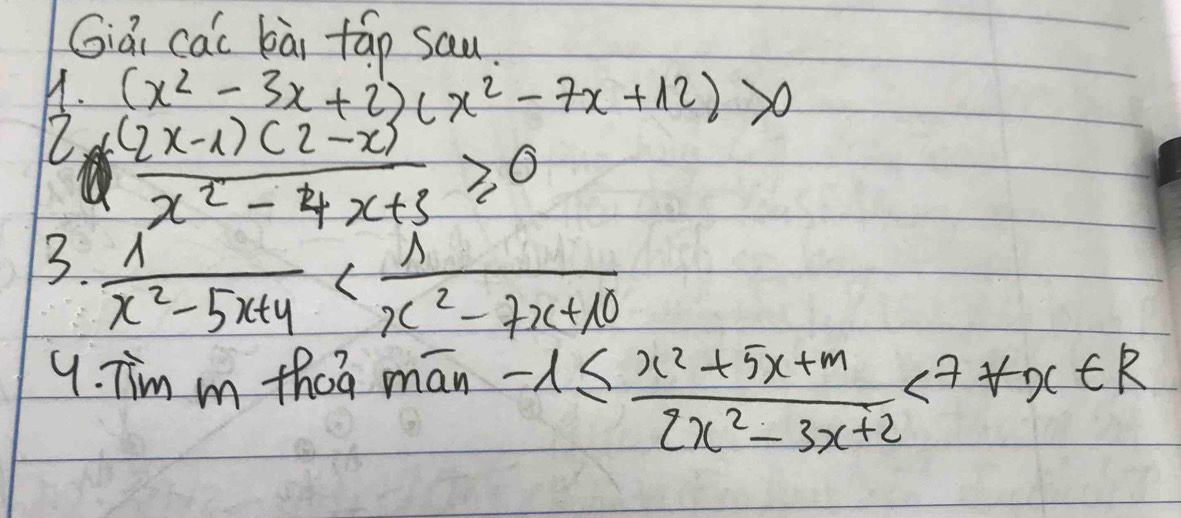 Giải các bài tập sau.
1. (x² - 3x + 2)(x² - 7x + 12) > 0
2. ((2x-1)(2-x))/(x² - 4x+3) ≥ 0
3. 1/(x² - 5x+4) < 1/(x² - 7x+10)
4. Tìm m thoả mãn -1 ≤ (x² + 5x + m)/(2x² - 3x+2) < 7 ∀x ∈ R